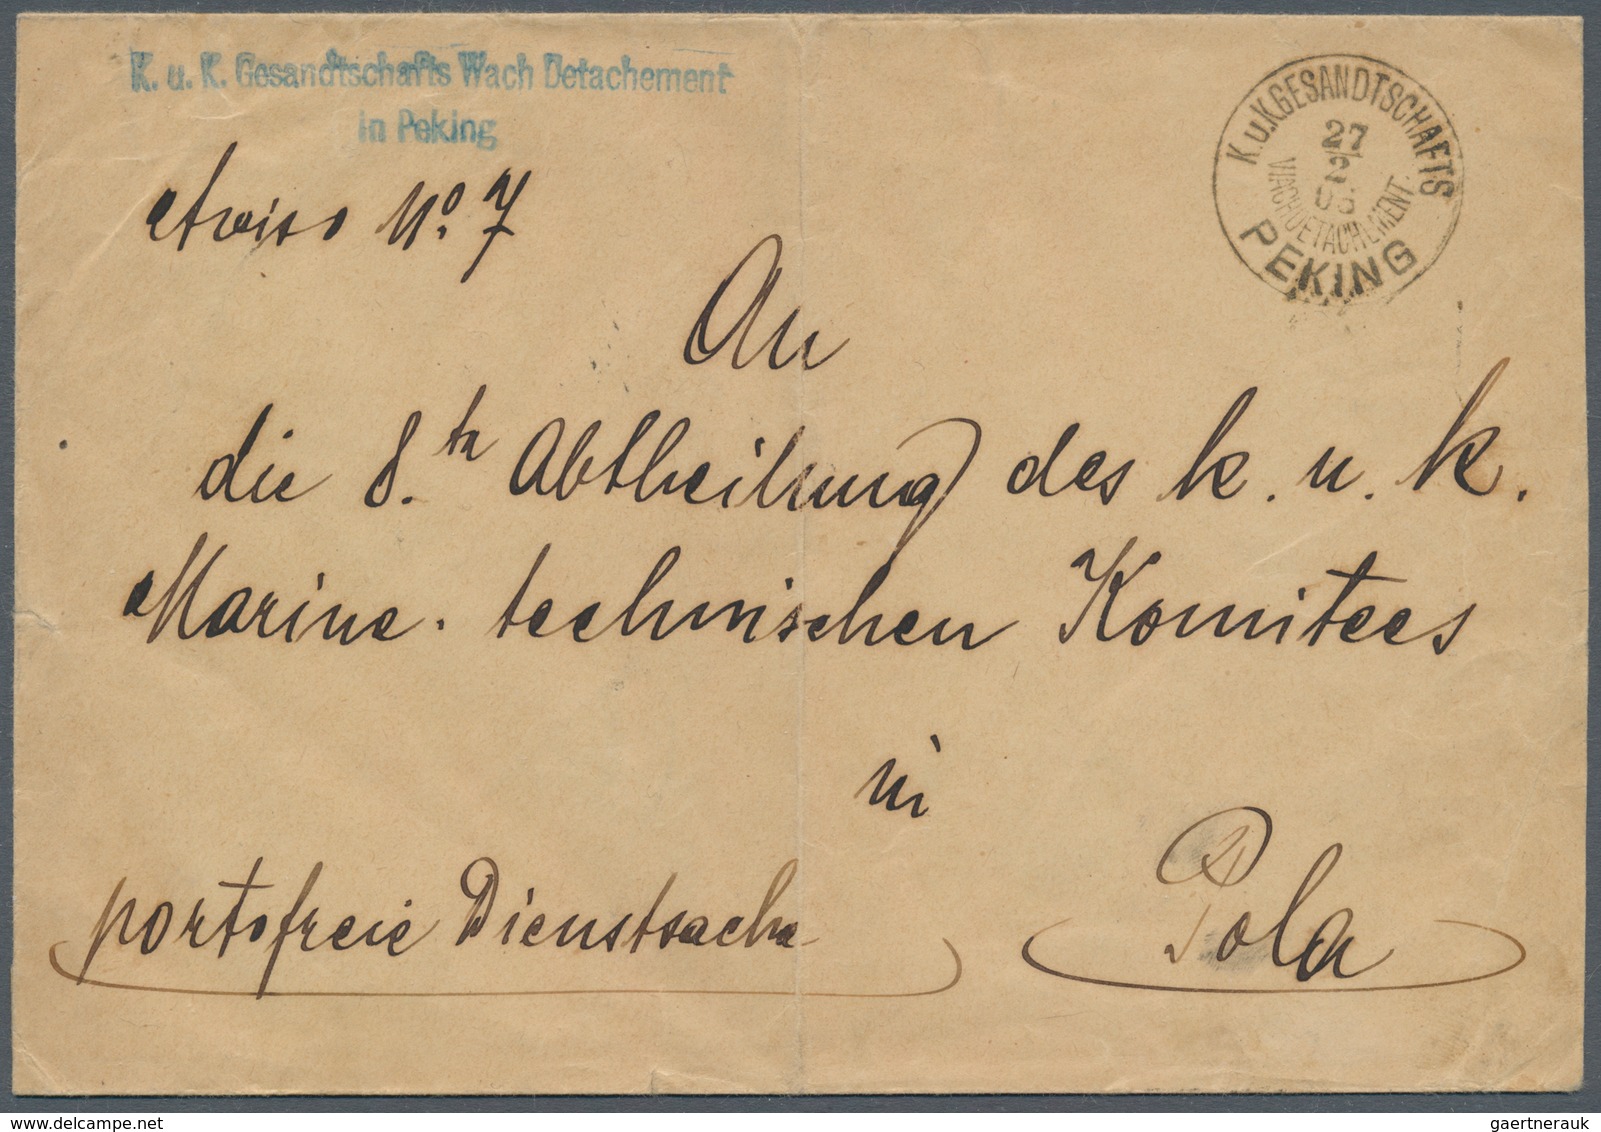 K. u. K. Gesandtschafts Wach Detachement
in Peking
Aviso No. 7
K.u.K.GESANDTSCHAFTS
27
2
WACHDETACHEMENT.
PEKING
An
die 8.te Abtheilung des k. u. k.
Marine-technischen Komitees
in
Pola
portofreie Dienstsache
gaertnerauk